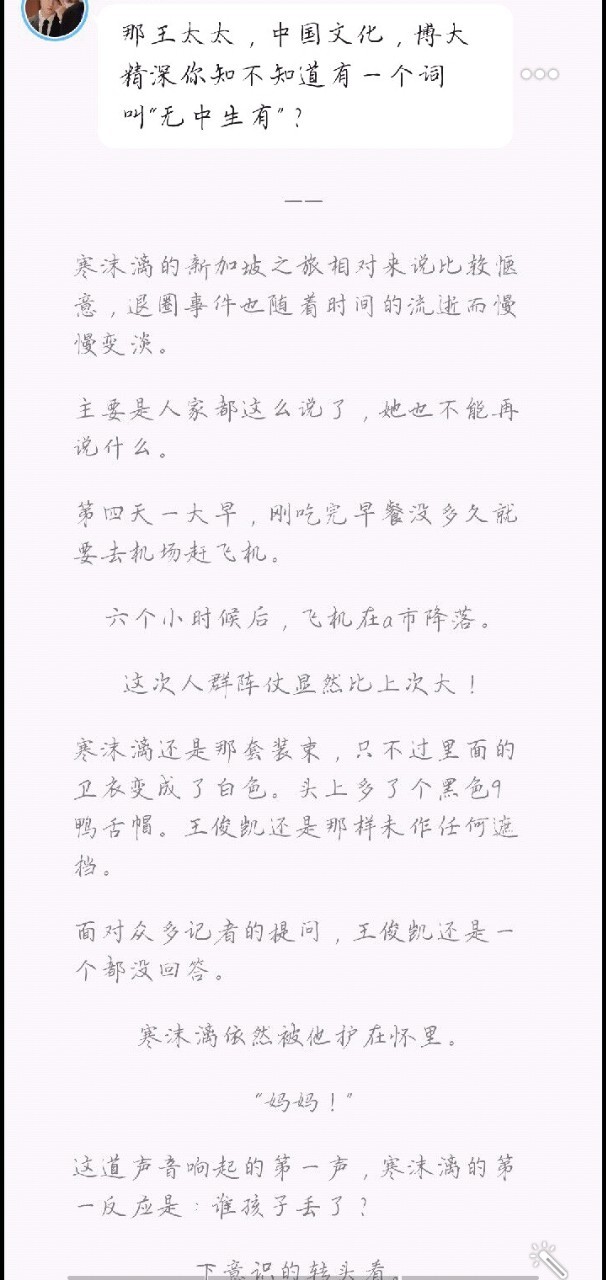 那王太太，中国文化，博大
精深你知不知道有一个词
叫“无中生有”？
——
寒沫漓的新加坡之旅相对来说比较惬
意，退圈事件也随着时间的流逝而慢
慢变淡。
主要是人家都这么说了，她也不能再
说什么。
第四天一大早，刚吃完早餐没多久就
要去机场赶飞机。
六个小时候后，飞机在a市降落。
这次人群阵仗显然比上次大！
寒沫漓还是那套装束，只不过里面的
卫衣变成了白色。头上多了个黑色9
鸭舌帽。王俊凯还是那样未作任何遮
挡。
面对众多记者的提问，王俊凯还是一
个都没回答。
寒沫漓依然被他护在怀里。
“妈妈！”
这道声音响起的第一声，寒沫漓的第
一反应是：谁孩子丢了？
下意识的转头看。